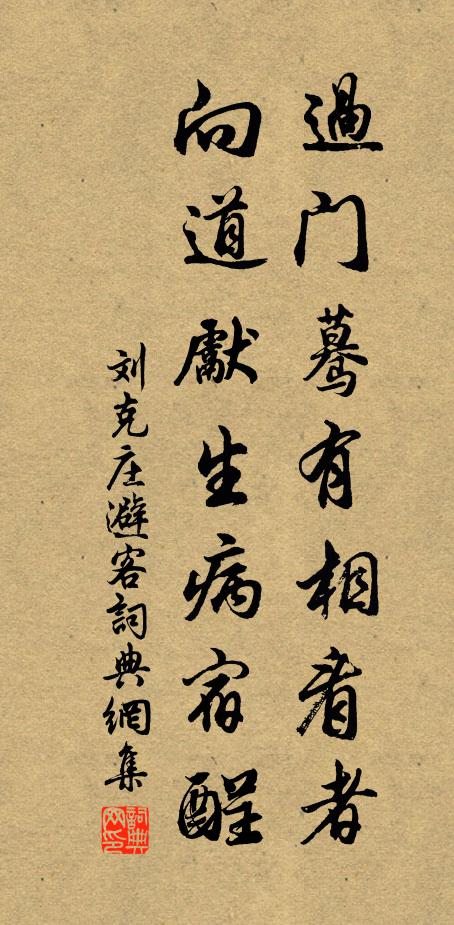 過门驀有相看者
向道獻生病宿酲
刘克庄避客詞典網集
詞典
网印